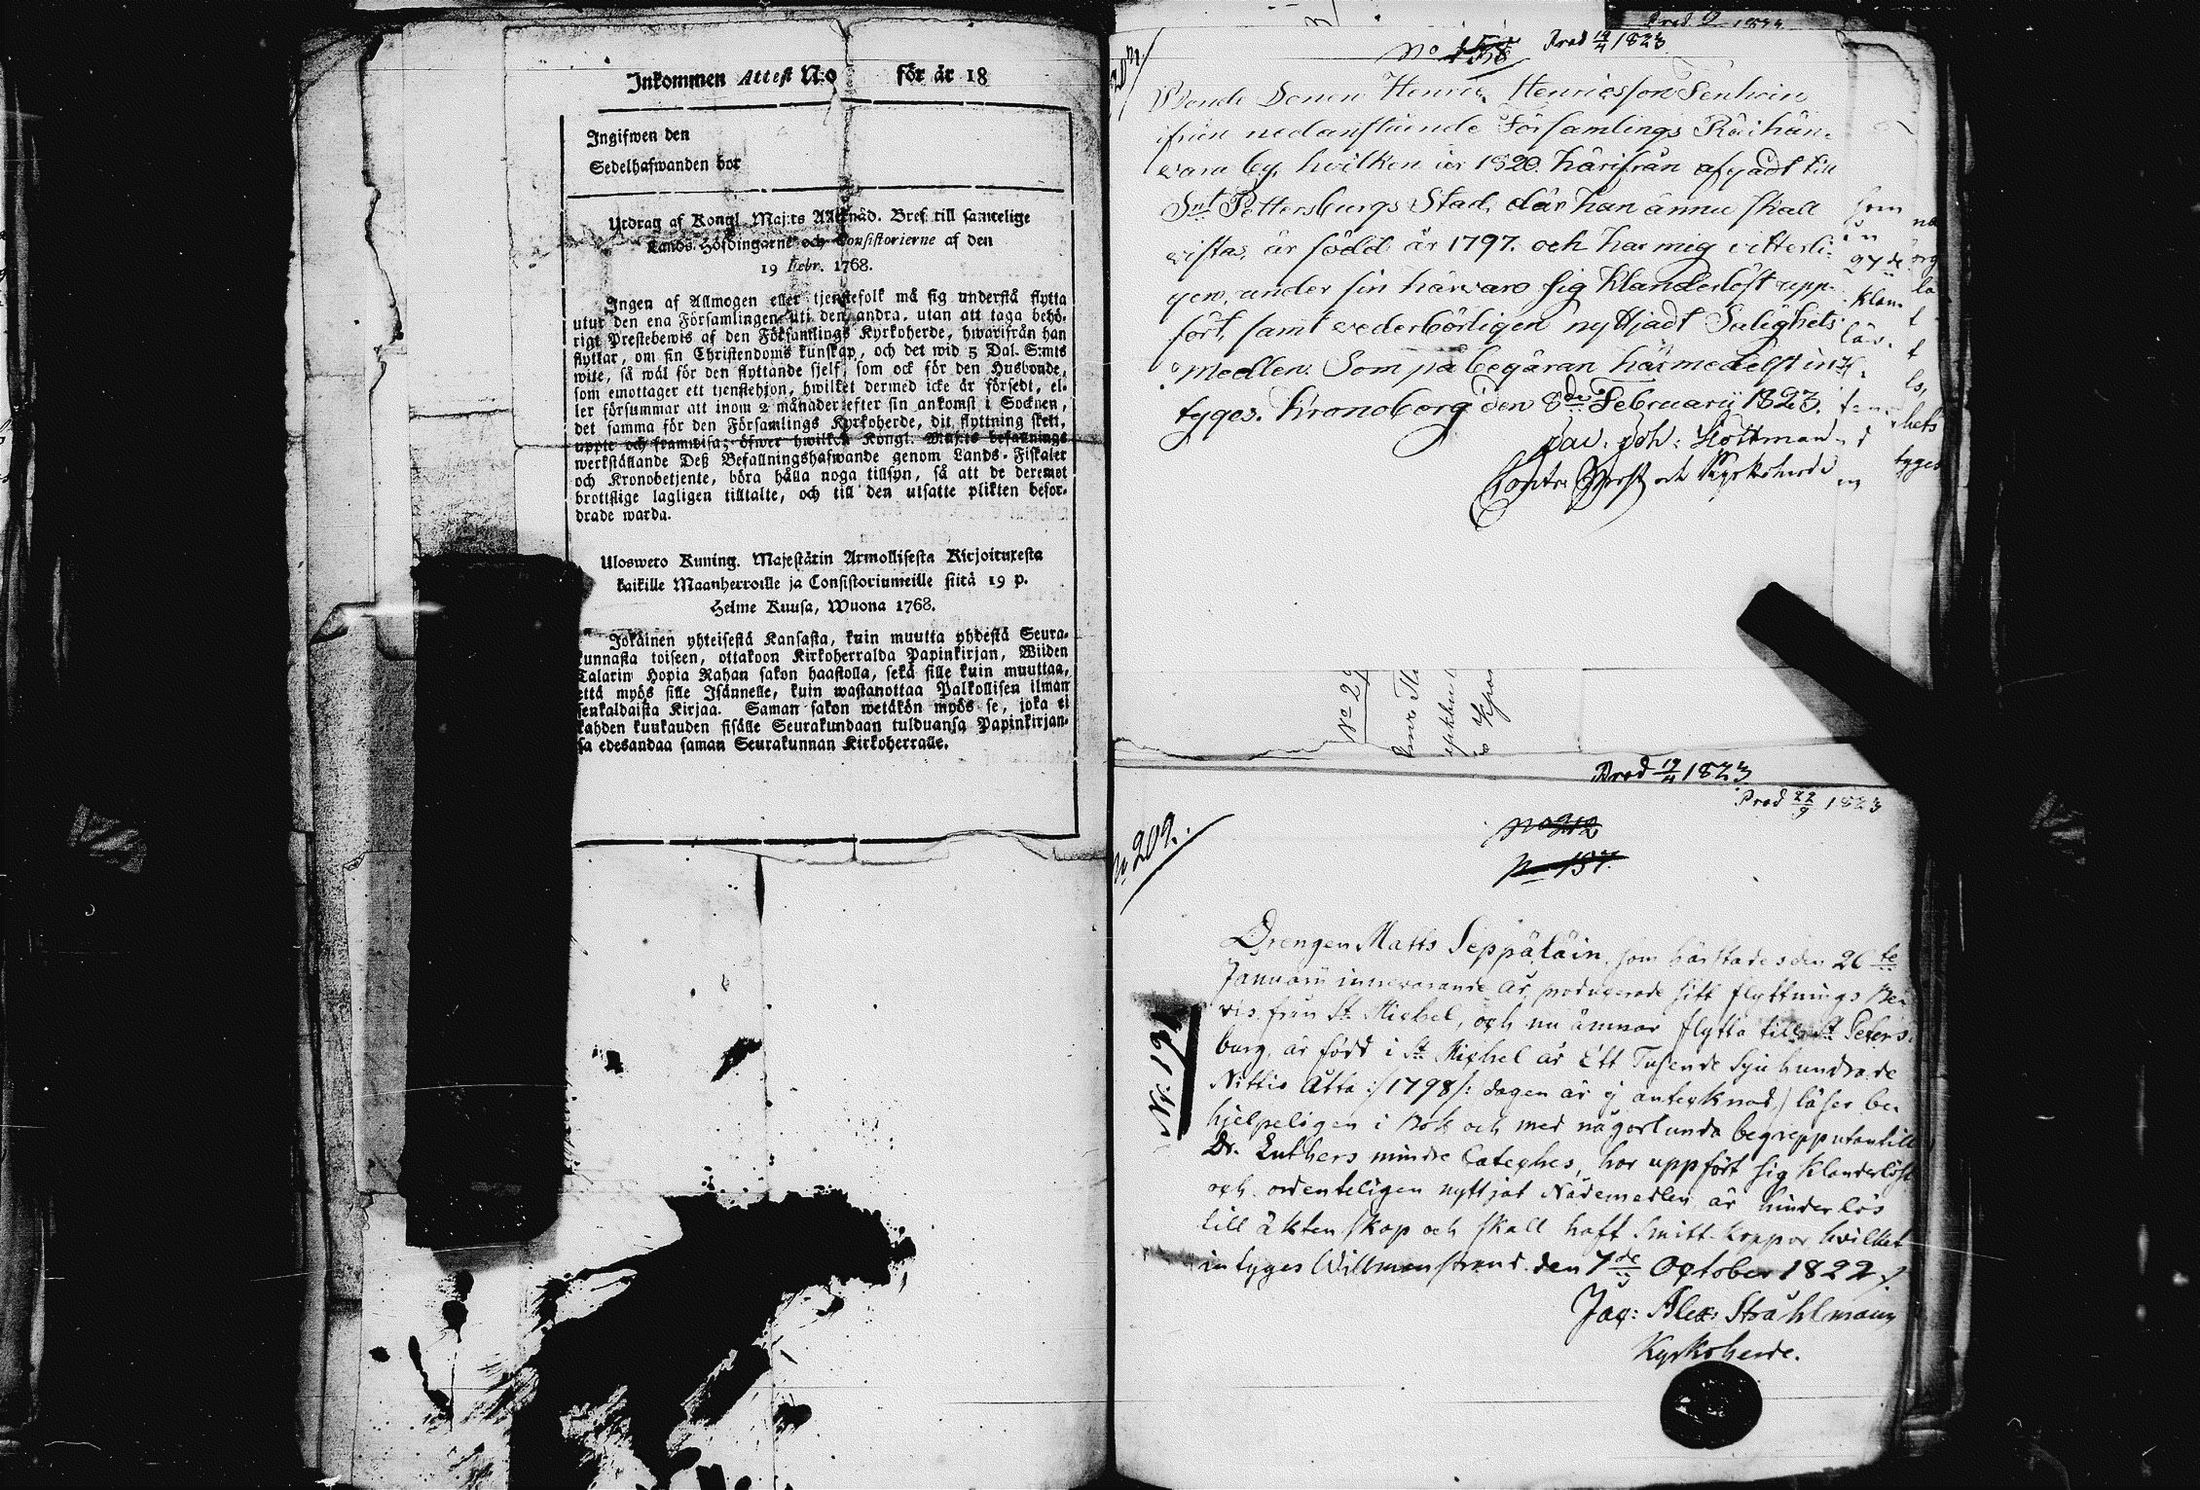 Inkommen Attest N:o för år 18
Ingifwen den
Sedelhafwanden bor
Utdrag af Kongl. Maj:ts Allernåd. Bref till samtelige
Lands-Höfdingarne och Consistorierne af den
19 Febr. 1768.
Ingen af Allmogen eller tjenstefolk må sig understå flytta
utur den ena Församlingen uti den andra, utan att taga behö-
rigt Prestebewis af den Församlings Kyrkoherde, hwarifrån han
flyttar, om sin Christendoms kunskap, och det wid 5 Dal. S:mts
wite, så wäl för den flyttande sjelf, som ock för den Husbonde,
som emottager ett tjenstehjon, hwilket dermed icke är försedt, el-
ler försummar att inom 2 månader efter sin ankomst i Socknen,
det samma för den Församlings Kyrkoherde, dit flyttning skett,
uppte och framwisa; öfwer hwilken Kongl. Maj:ts befallnings
werkställande Deß Befallningshafwande genom Lands-Fiskaler
och Kronobetjente, böra hålla noga tillsyn, så att de deremot
brottslige lagligen tilltalte, och till den utsatte plikten befor-
drade warda.
Uloswero Kuning. Majestätin Armollisesta Kirjoituxesta
kaikille Maanherroille ja Consistoriumeille siitä 19 p.
Helme Kuusa, Wuona 1768.
Jokainen yhteisestä Kansasta, kuin muutta yhdestä Seura-
kunnasta toiseen, ottakoon Kirkoherralda Papinkirjan, Wiiden
Talarin Hopia Rahan sakon haastolla, sekä sille kuin muuttaa,
että myös sille Isännelle, kuin wastanottaa Palkollisen ilman
senkaldaista Kirjaa. Saman sakon wetäkön myös se, joka ei
kahden kuukauden sisälle Seurakundaan tulduansa Papinkirjan-
sa edesandaa saman Seurakunnan Kirkoherralle.
No 158 Prod 19/4 1823
Bonde Sonen Henric Henricsson Senhoin
ifrån nedanstående Församlings Räihän-
vara by, hvilken år 1820. härifrån afgådt till
Snt Pettersburgs Stad, där han ännu skall
vistas, är född år 1797. och har mig vitterli-
gen, under sin härvaro sig klanderlöst upp-
fört, samt vederbörligen nyttjadt Salighets
medlen. Som på begäran härmedelst in-
tyges. Kronoborg den 8de Februarii 1823.
Jac. Joh: Hoffman
Contr. Prost och Kyrkoherde
No 2
Prod 19/4 1823
Prod 22/9 1823
No 212
No 157
N 209.
Nr. 192
Drengen Matts Seppäläin, som härstädes den 26te
Januarii innevarande År, producerade sitt flyttnings Be-
vis från St Michel, och nu ämnar flytta till St Peters-
burg, är född i St Michel år Ett Tusende Sju hundrade
Nittio Åtta :/1798/: dagen är ej antecknad,) läser be-
hjelpeligen i Bok och med någorlunda begrepp utantill
Dr. Luthers mindre Cateches, har uppfört sig klanderlöst
och ordenteligen nyttjat Nådemedlen, är hinderlös
till äktenskap och skall haft Smitt-koppor hvilket
intyges Willmanstrand. den 7de October 1822.
Jac: Alex: Stråhlmann
Kyrkoherde.